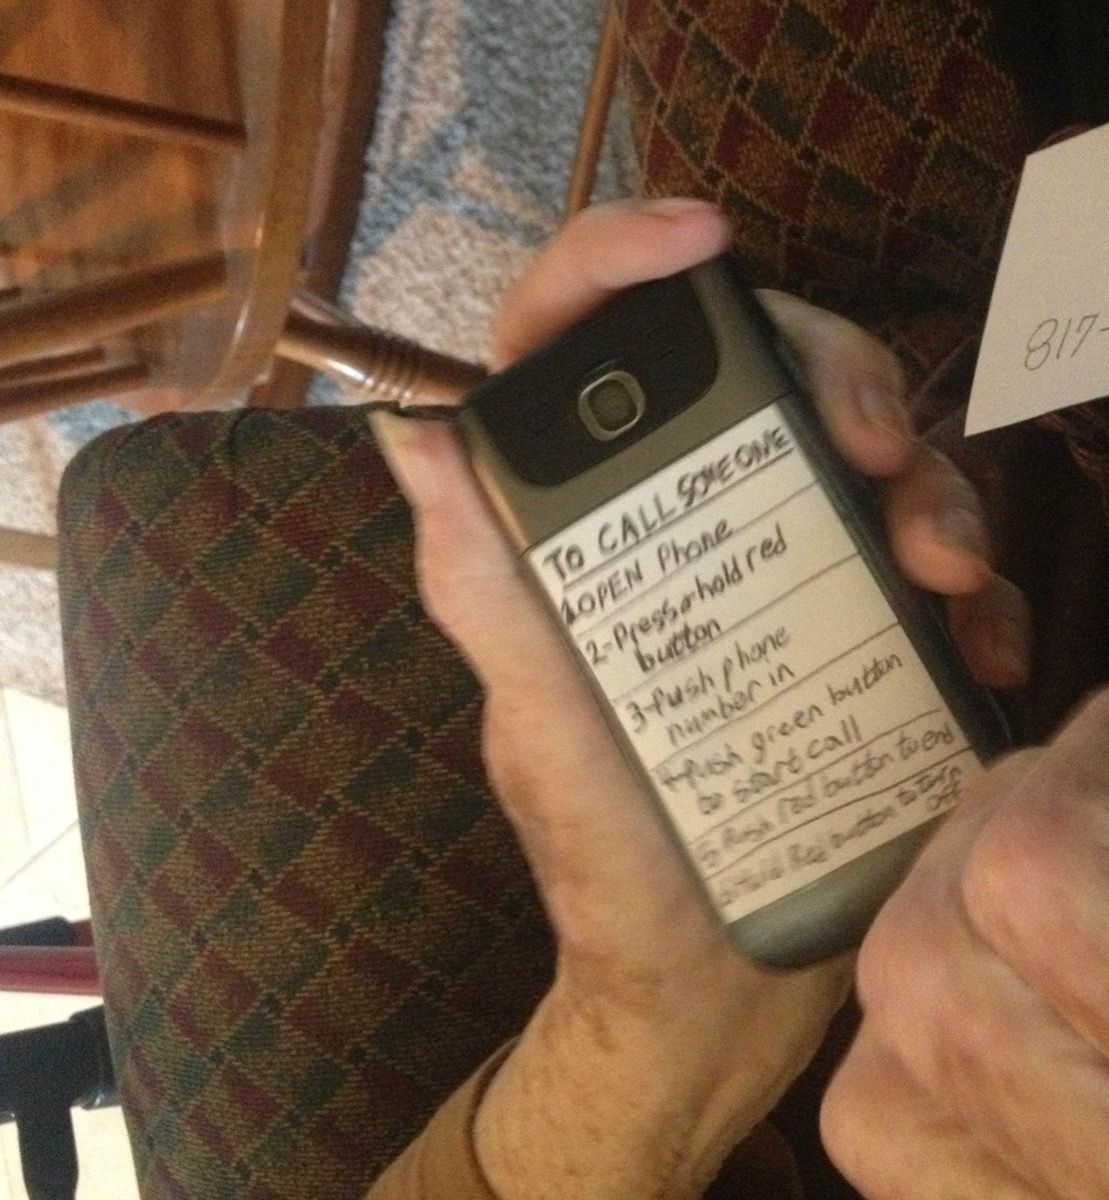 TO CALL SOMEONE
1-OPEN Phone
2-Press & hold red
button
3-Push phone
number in
4-push green button
to start call
5-Push red button to end
6-Hold Red button to turn
off
817-